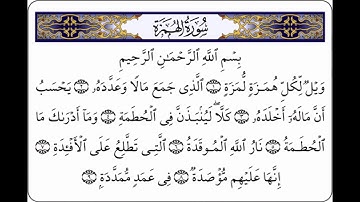 سُورَةُ الهُمَزَةِ
بِسْمِ اللَّهِ الرَّحْمَٰنِ الرَّحِيمِ
وَيْلٌ لِّكُلِّ هُمَزَةٍ لُّمَزَةٍ ۝١ الَّذِي جَمَعَ مَالًا وَعَدَّدَهُۥ ۝٢ يَحْسَبُ
أَنَّ مَالَهُۥٓ أَخْلَدَهُۥ ۝٣ كَلَّا ۖ لَيُنۢبَذَنَّ فِي الْحُطَمَةِ ۝٤ وَمَآ أَدْرَىٰكَ مَا
الْحُطَمَةُ ۝٥ نَارُ اللَّهِ الْمُوقَدَةُ ۝٦ الَّتِي تَطَّلِعُ عَلَى الْأَفْـِٔدَةِ ۝٧
إِنَّهَا عَلَيْهِم مُّؤْصَدَةٌ ۝٨ فِي عَمَدٍ مُّمَدَّدَةٍۭ ۝٩